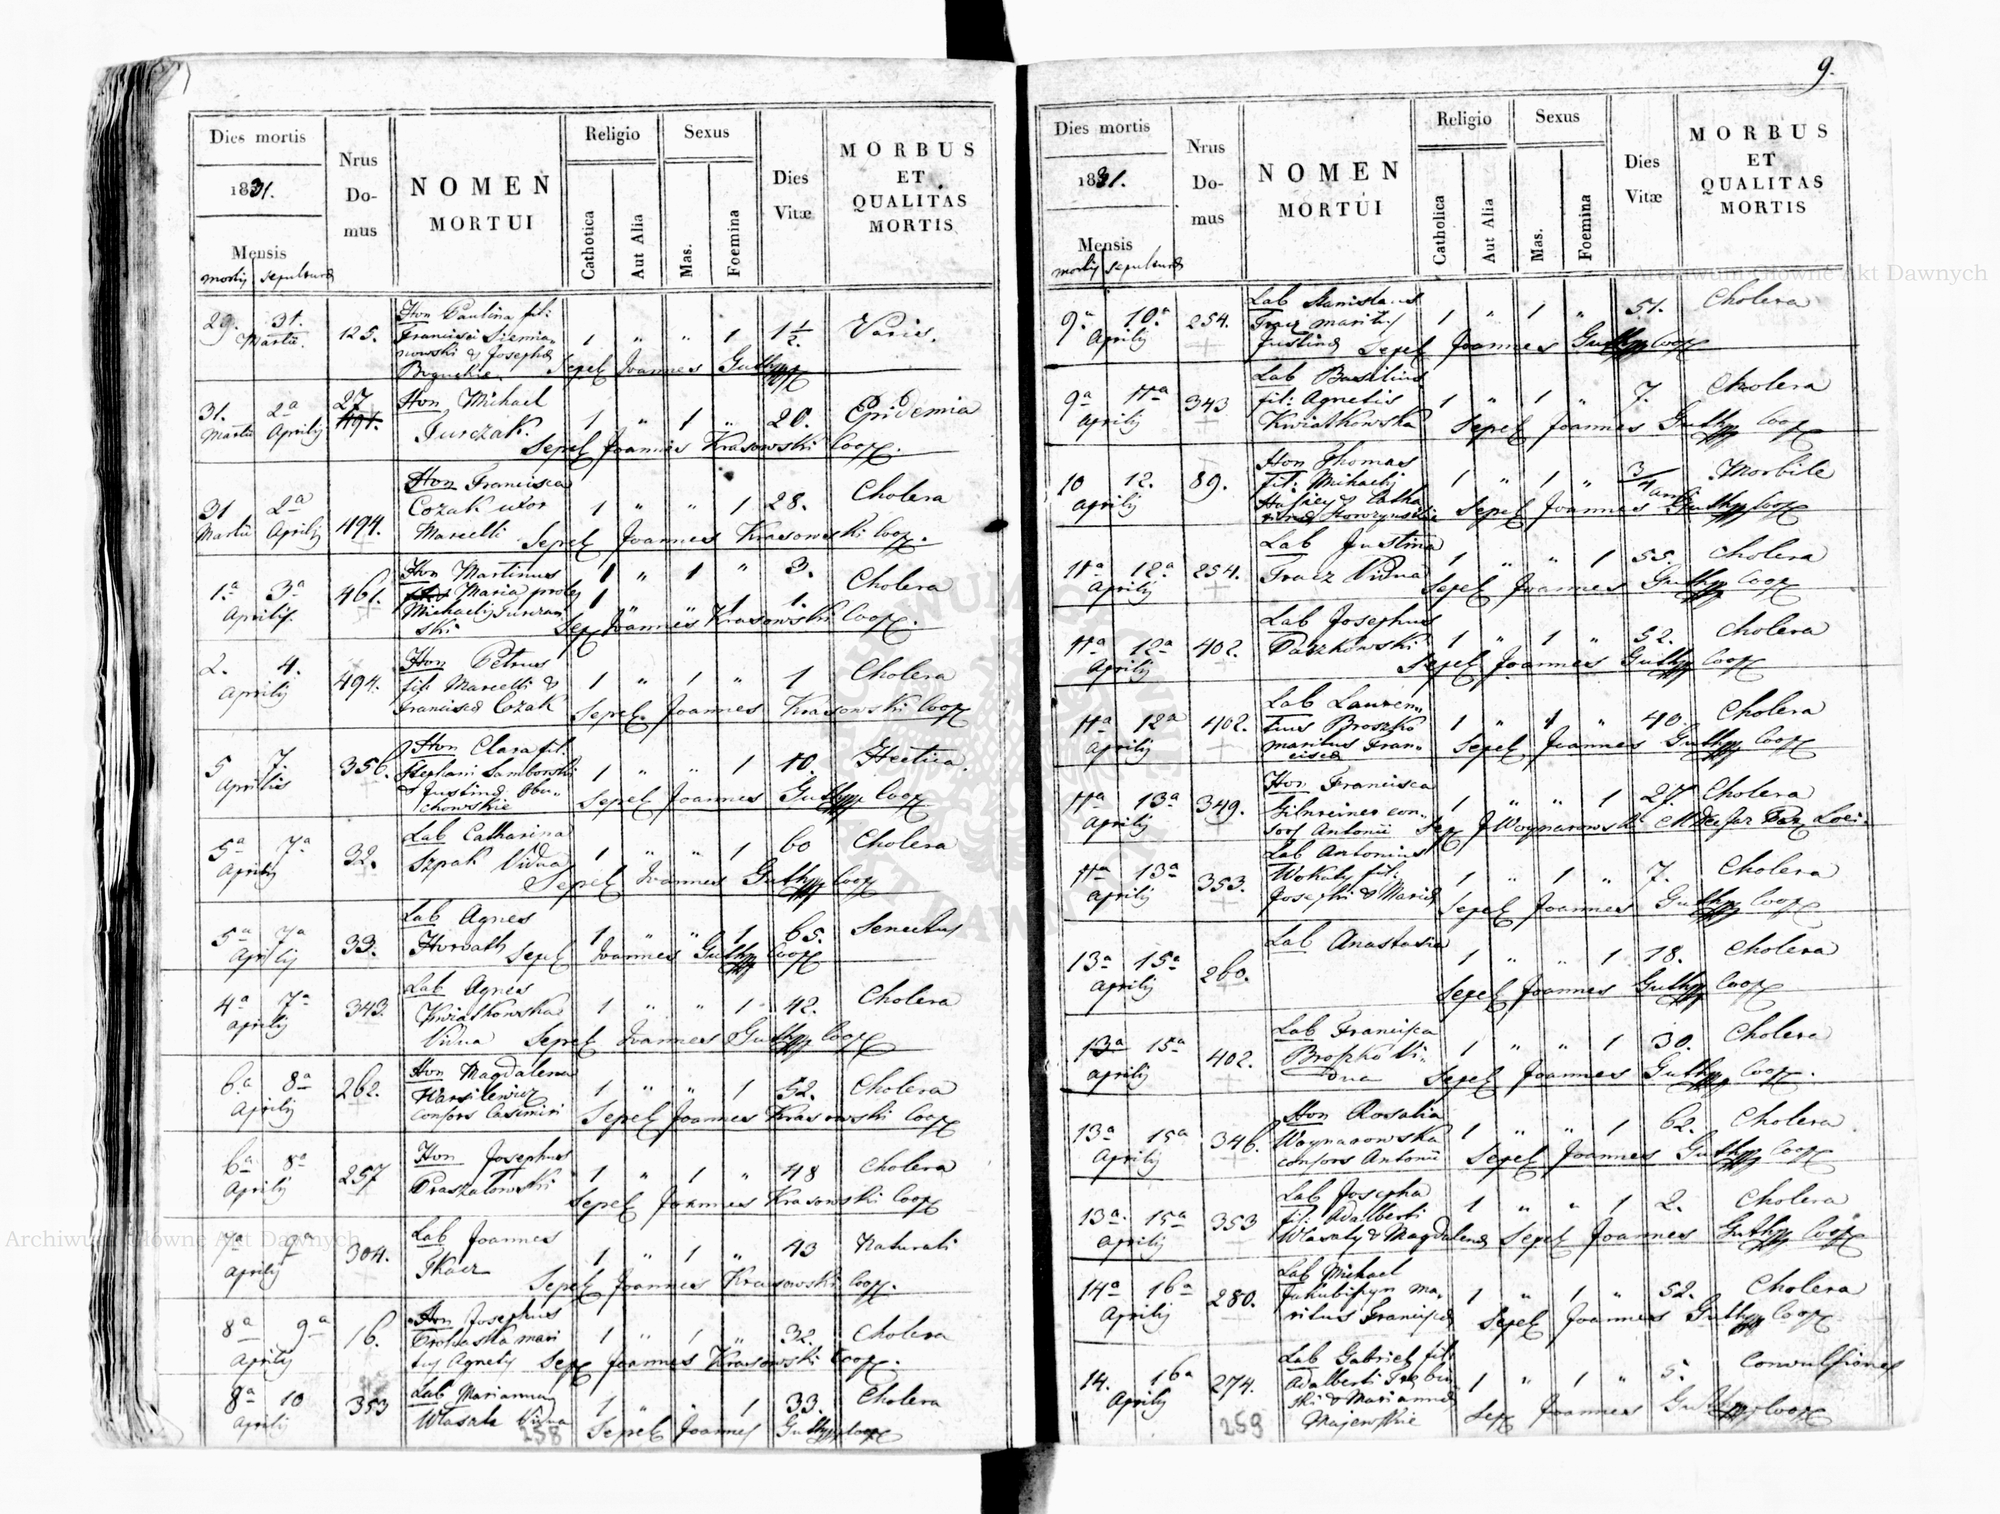 Dies mortis
1831.
Mensis
mortis sepulturae
Nrus
Do-
mus
NOMEN
MORTUI
Religio
Catholica
Aut Alia
Sexus
Mas.
Foemina
Dies
Vitæ
MORBUS
ET
QUALITAS
MORTIS
29. 31. Martii. 125. Hon Paulina fil: 1 " " 1 1 1/2 Varies.
Francisci Siemia-
nowski & Josepha
Sepel Joannes
31. 2a 27 491. Hon Michael 1 " 1 " 26. Epidemia
Martii Aprilis Turczak.
Sepel Joannes Krasowski Coop.
31 2a 494. Hon Francisca 1 " " 1 28. Cholera
Martii Aprilis Cozak uxor
Marcelli Sepel Joannes Krasowski Coop.
1.a 3a 461. Hon Martinus 1 " 1 " 3. Cholera
Aprilis. Maria proles 1 " " 1 1.
Michaelis Turczan
ski Sep Joannes Krasowski Coop.
2. 4. 494. Hon Petrus 1 " 1 " 1 Cholera
Aprilis fili Marcelli &
Francisca Cozak Sepel Joannes Krasowski Coop
5 7. 356. Hon Clara fil. 1 " " 1 10. Hectica.
Aprilis Stephani Samborski
& Justina
Sepel Joannes Coop
5a 7a 32. Lab Catharina 1 " " 1 60 Cholera
Aprilis Szpak Vidua
Sepel Joannes Coop
5a 7a 33. Lab Agnes 1 " " 1 65. Senectus
Aprilis Horvath Sepel Joannes Coop
4a 7a 343. Lab Agnes 1 " " 1 42. Cholera
Aprilis Kwiatkowska
Vidua Sepel Joannes Coop
6a 8a 262. Hon Magdalena 1 " " 1 52. Cholera
Aprilis Wasilewicz
consors Casimiri Sepel Joannes Krasowski Coop
6a 8a 257 Hon Josephus 1 " 1 " 48 Cholera
Aprilis Praszalowski
Sepel Joannes Krasowski Coop
7a 7a 304. Lab Joannes 1 " 1 " 43 Naturali
Aprilis Tkacz
Sepel Joannes Krasowski Coop.
8a 9a 16. Hon Josephus 1 " 1 " 32. Cholera
Aprilis Prohaska mari
tus Agnetis Sep Joannes Krasowski Coop.
8a 10 353 Lab Marianna 1 " 1 33. Cholera
Aprilis Wlasata Vidua
Sepel Joannes Coop
258
9.
Dies mortis
1831.
Mensis
mortis sepulturae
Nrus
Do-
mus
NOMEN
MORTUI
Religio
Catholica
Aut Alia
Sexus
Mas.
Foemina
Dies
Vitæ
MORBUS
ET
QUALITAS
MORTIS
9a 10a 254. Lab Stanislaus 1 " 1 " 51. Cholera
Aprilis Tracz maritus
Justina Sepel Joannes Coop
9a 11a 343 Lab Basilius 1 " 1 " 7. Cholera
Aprilis fil: Agnetis
Kwiatkowska Sepel Joannes Coop
10 12. 89. Hon Thomas 1 " 1 " 3/4 anni Morbile
Aprilis fil: Michaelis
Sepel Joannes Coop
11a 12a 254. Lab Justina 1 " " 1 55. Cholera
Aprilis Tracz Vidua
Sepel Joannes Coop
11a 12a 402. Lab Josephus 1 " 1 " 52. Cholera
Aprilis Paszkowski
Sepel Joannes Coop
11a 12a 402. Lab Lauren- 1 " 1 " 40. Cholera
Aprilis tius Broszko
maritus Fran-
cisca Sepel Joannes Coop
11a 13a 349. Hon Francisca 1 " " 1 27. Cholera
Aprilis Gilnreiner con-
sors Antonii Sep J Woynarowski Loci.
11a 13a 353. Lab Antonius 1 " 1 " 7. Cholera
Aprilis Wokity fil:
Josephi & Maria Sepel Joannes Coop
13a 15a 260. Lab Anastasia 1 " " 1 18. Cholera
Aprilis
Sepel Joannes Coop
13a 15a 402. Lab Francisca 1 " " 1 30. Cholera
Aprilis Broszko Vi-
dua Sepel Joannes Coop.
13a 15a 346. Hon Rosalia 1 " " 1 62. Cholera
Aprilis Woynarowska
consors Antonii Sepel Joannes Coop
13a 15a 353 Lab Josepha 1 " " 1 2. Cholera
Aprilis fil: Adalberti
Wlasaty & Magdalena Sepel Joannes Coop
14a 16a 280. Lab Michael 1 " 1 " 52. Cholera
Aprilis Jakubiszyn ma-
ritus Francisca Sepel Joannes Coop
14. 16a 274. Lab Gabriel fil: 1 " 1 " 5. Convulsiones
Aprilis Adalberti
ski & Marianna
Majewskie Sep Joannes Coop
259
Archiwum Główne Akt Dawnych
Archiwum Główne Akt Dawnych
ARCHIWUM GŁÓWNE AKT DAWNYCH